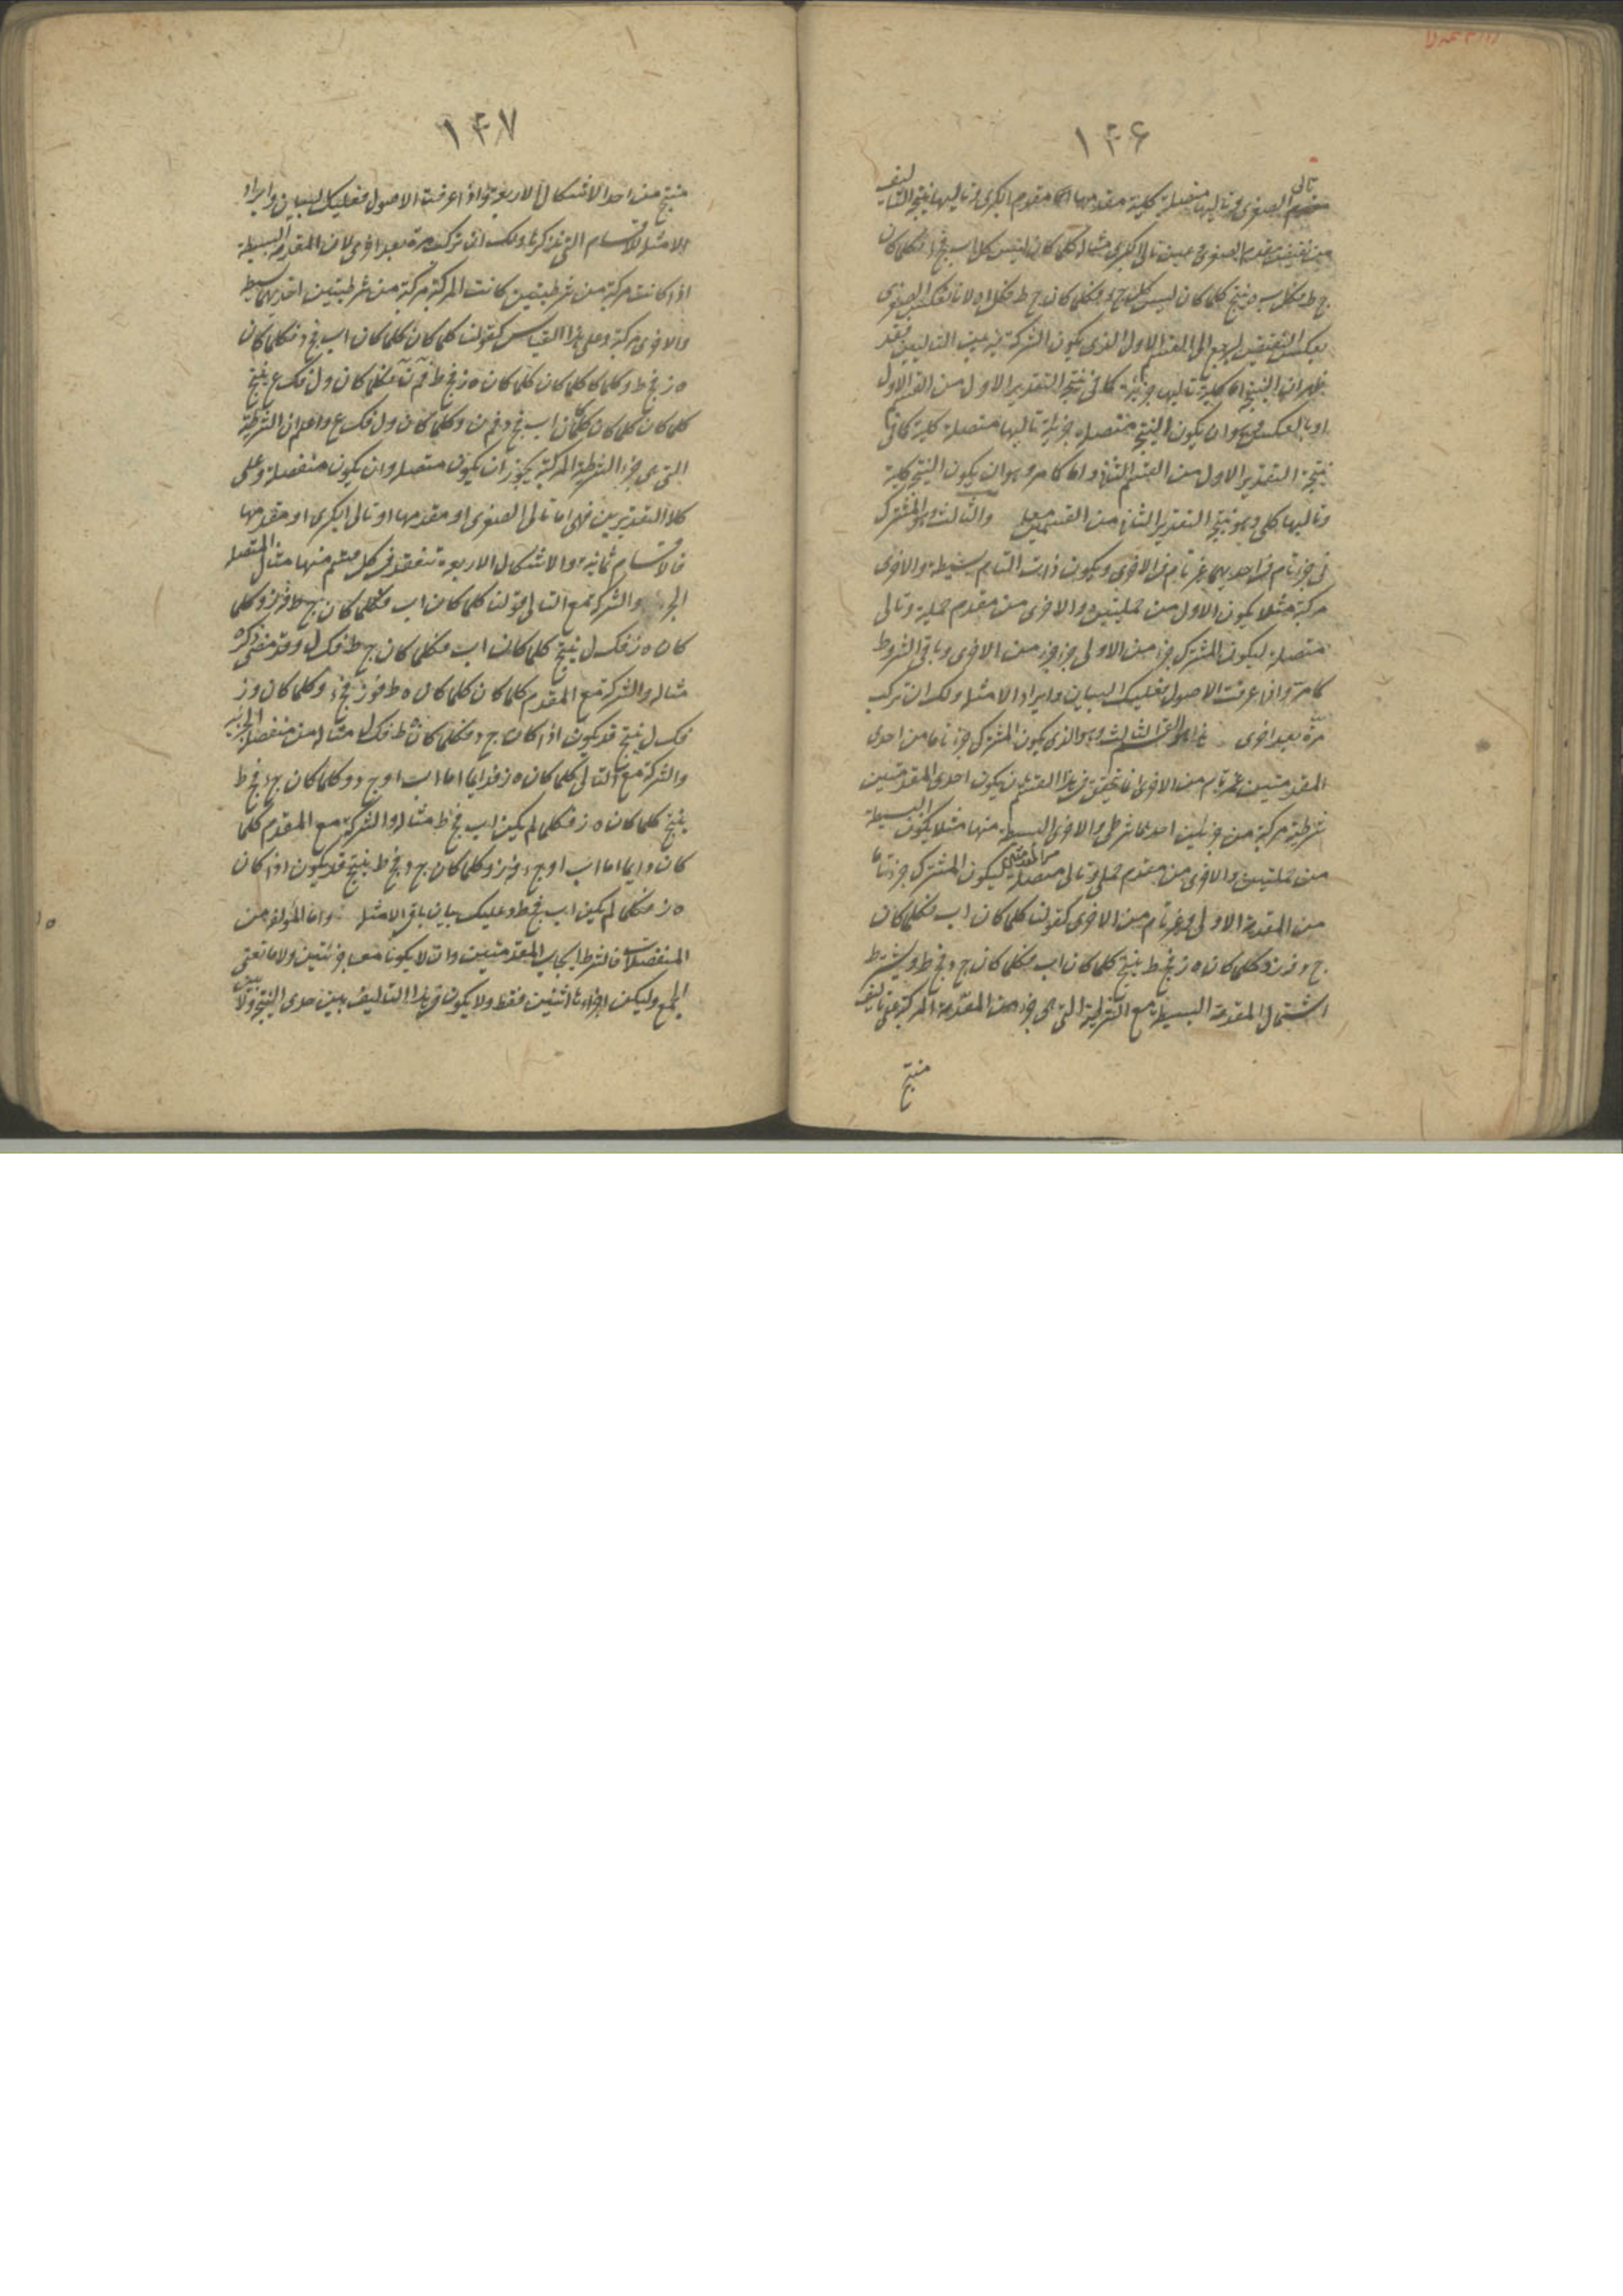 ١٤٦
تالى
الصغرى وتاليها متصلة كلية مقدمها مقدم الكبرى وتاليها نتيجة التاليف
من نقيض مقدم الصغرى وعين تالى الكبرى مثاله كلما كان ليس كل اب فج د فكلما كان
ج ط فكل ب ه ينتج كلما كان ليس كل ج د فكلما كان ج ط فكل ا ه لانا نعكس الصغرى
بعكس النقيض ليرجع الى القسم الاول الذى يكون الشركة فيه بين التاليين فقد
ظهر ان النتيجة اما كلية تاليها جزئية كما فى نتيجة التقدير الاول من القسم الاول
او بالعكس وهو ان يكون النتيجة متصلة جزئية تاليها متصلة كلية كما فى
نتيجة التقدير الاول من القسم الثانى واما كما مر وهو ان يكون النتيجة كلية
وتاليها كلى وهو نتيجة التقدير الثانى من القسمين معا والثالث وهو المشترك
فى جزء تام من احديهما غير تام من الاخرى ويكون ذات التام بسيطة والاخرى
مركبة مثلا يكون الاول من حمليتين والاخرى من مقدم حملية وتالى
متصلة ليكون المشترك جزء من الاولى جزء جزء من الاخرى وباقى الشروط
كما مر واذا عرفت الاصول فعليك البيان وايراد الامثلة ولك ان تركب
مرة بعد اخرى القسم الثالث وهو الذى يكون المشترك جزء تاما من احدى
المقدمتين غير تام من الاخرى انما يتحقق فى هذا القسم بان يكون احدى المقدمتين
شرطية مركبة من جزئين احدهما شرطى والاخرى البسيطة منها مثلا يكون البسيطة
من حمليتين والاخرى من مقدم حملى وتالى متصلة ليكون المشترك جزء تاما
من المقدمة الاولى وغير تام من الاخرى كقولنا كلما كان اب فكلما كان
ج د ه ز وكلما كان ه ز فح ط ينتج كلما كان اب فكلما كان ج د فح ط ويشترط
اشتمال المقدمة البسيطة مع الشرطية التى هى جزء من المقدمة المركبة على تاليف
منتج
١٤٧
منتج من احد الاشكال الاربعة واذا عرفت الاصول فعليك البيان وايراد
الامثلة للاقسام التى نذكرها ولك ان تركب مرة بعد اخرى لان المقدمة البسيطة
اذا كانت مركبة من شرطيتين كانت المركبة مركبة من شرطيتين احديهما بسيط
والاخرى مركبة وعلى هذا القياس كقولنا كلما كان كلما كان اب فج د فكلما كان
ه ز فح ط وكلما كان كلما كان ه ز فح ط فم ن فكلما كان ول فك ع ينتج
كلما كان كلما كان اب فج د فم ن وكلما كان ول فك ع واعلم ان الشرطية
التى هى جزء الشرطية المركبة يجوز ان يكون متصلة وان يكون منفصلة وعلى
كلا التقديرين فهى اما تالى الصغرى او مقدمها او تالى الكبرى او مقدمها
فالاقسام ثمانية والاشكال الاربعة تنعقد فى كل قسم منها مثال المتصلة
الجزء والشركة مع التالى قولنا كلما كان اب فكلما كان ج ط فه ز وكلما
كان ه ز فك ل ينتج كلما كان اب فكلما كان ج ط فك ل وقد مضى ذكره
مثاله والشركة مع المقدم كلما كان كلما كان ه ط فو ز فج د وكلما كان و ز
فك ل ينتج قد يكون اذا كان ج د فكلما كان ه ط فك ل مثاله من منفصلة الجزئية
والشركة مع التالى كلما كان ه ز فدائما اما اب او ج د وكلما كان ج د فح ط
ينتج كلما كان ه ز فكلما لم يكن اب فح ط مثاله والشركة مع المقدم كلما
كان دائما اما اب او ج د فه ز وكلما كان ج د فح ط ينتج قد يكون اذا كان
ه ز فكلما لم يكن اب فح ط وعليك بيان باقى الامثلة واما المؤلفة من
المنفصلات فالشرط ايجاب المقدمتين وان لا يكونا معا جزئتين ولا مانعتى
الجمع وليكن اجزاءها اثنين فقط ولا يكون فى هذا التاليف بين حدى النتيجة ولا بين